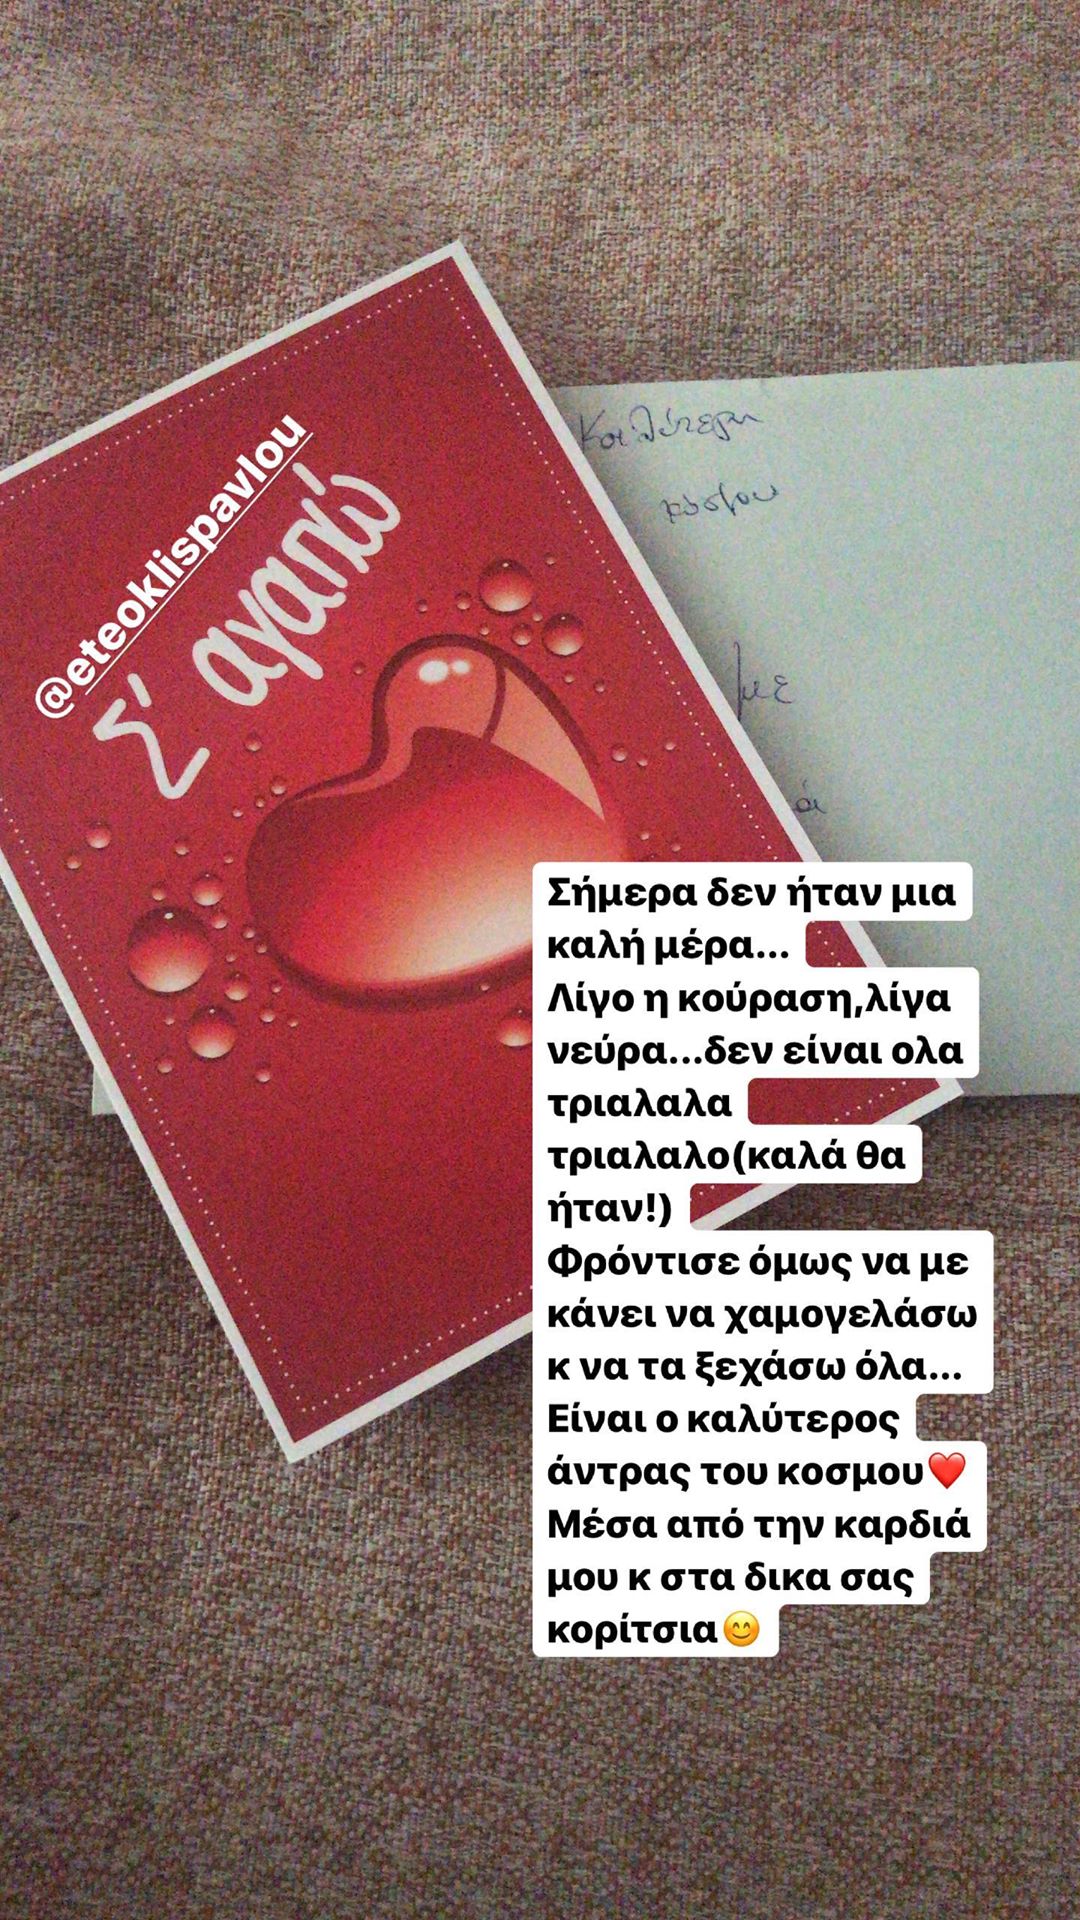 @eteoklispavlou
Σ' αγαπώ
Καλύτερη
κόσμου
με
Σήμερα δεν ήταν μια
καλή μέρα...
Λίγο η κούραση,λίγα
νεύρα...δεν είναι ολα
τριαλαλα
τριαλαλο(καλά θα
ήταν!)
Φρόντισε όμως να με
κάνει να χαμογελάσω
κ να τα ξεχάσω όλα...
Είναι ο καλύτερος
άντρας του κοσμου❤️
Μέσα από την καρδιά
μου κ στα δικα σας
κορίτσια😊